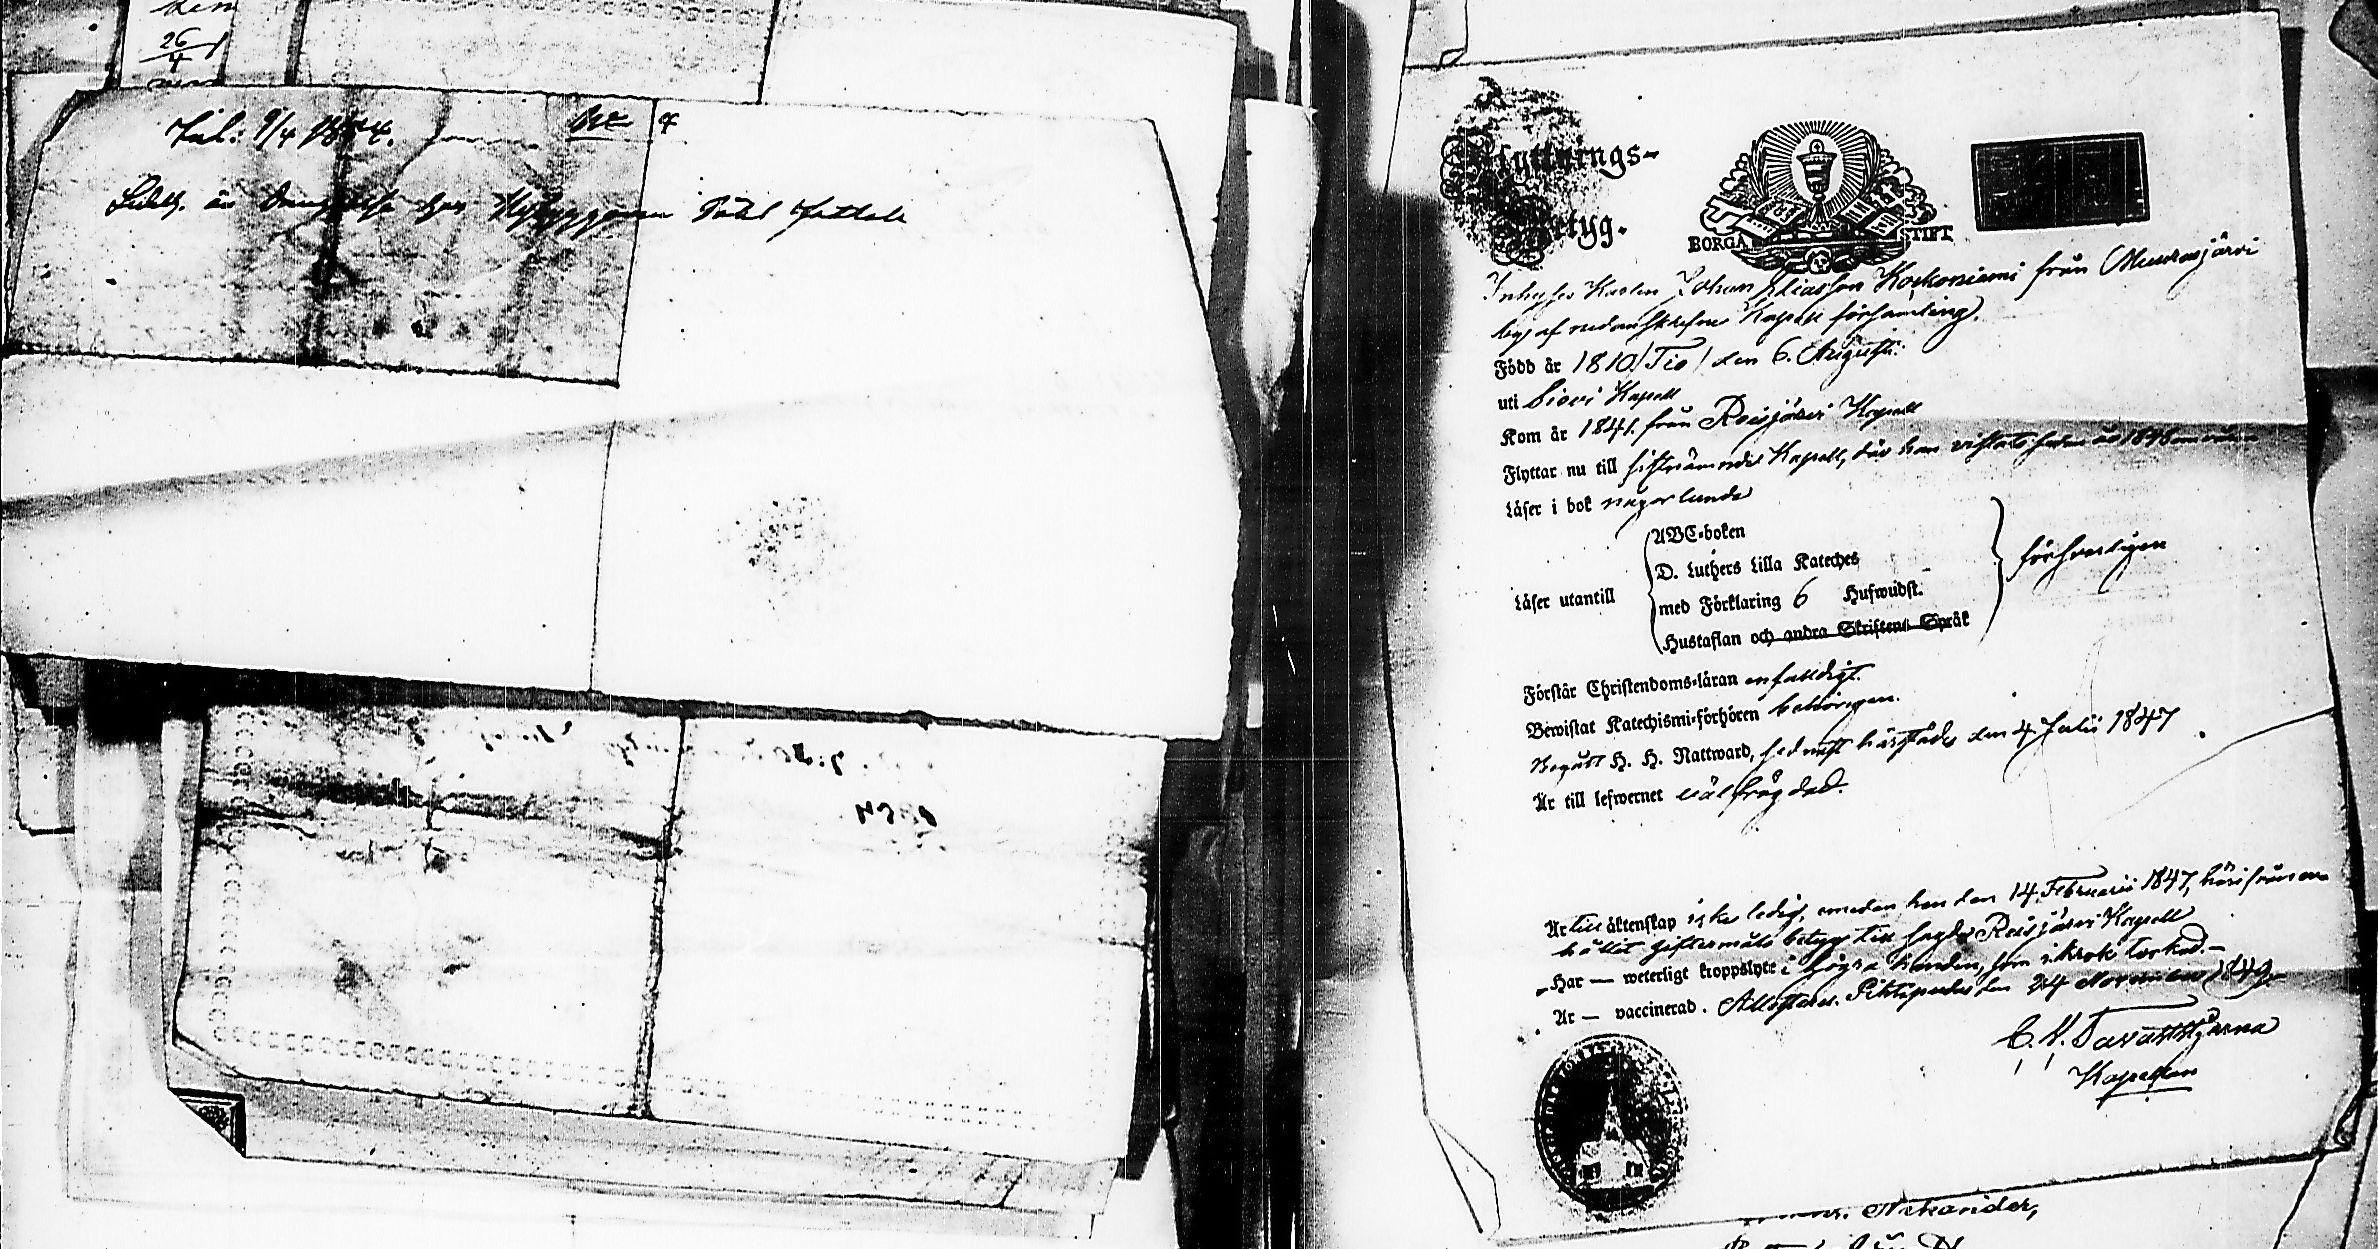 den
26/4
Inl: 9/4 1854. No 7
Flyttnings-
Betyg.
BORGÅ STIFT
Inhyses Karlen Johan Eliasson Koskoniemi från Muurasjärvi
by af nedanskrefne Kapell församling.
Född år 1810 / Tio / den 6. Augusti.
uti Sievi Kapell
Kom år 1841. från Reisjärvi Kapell
Flyttar nu till sistnämnde Kapell, där han vistats sedan år 1846
Läser i bok någorlunda
Läser utantill
ABC-boken
D. Luthers Lilla Kateches
med Förklaring 6 Hufwudst.
Hustaflan och andra Skriftens Språk
försvarligen
Förstår Christendoms-läran enfaldigt.
Bewistat Katechismi-förhören behörigen.
Begått H. H. Nattward, sednast härstädes den 4 Julii 1847
Är till lefwernet välfrägdad.
Är till äktenskap icke ledig, emedan han den 14. Februarii 1847, härifrån
Giftermåls betyg till sagde Reisjärvi Kapell
Har — weterligt kroppslyte i högra handen, som
Är — vaccinerad. Attesteras. Pihtipudas den 24 November 1849.
C. N. Tavaststjerna
Kapellan
Nekander,